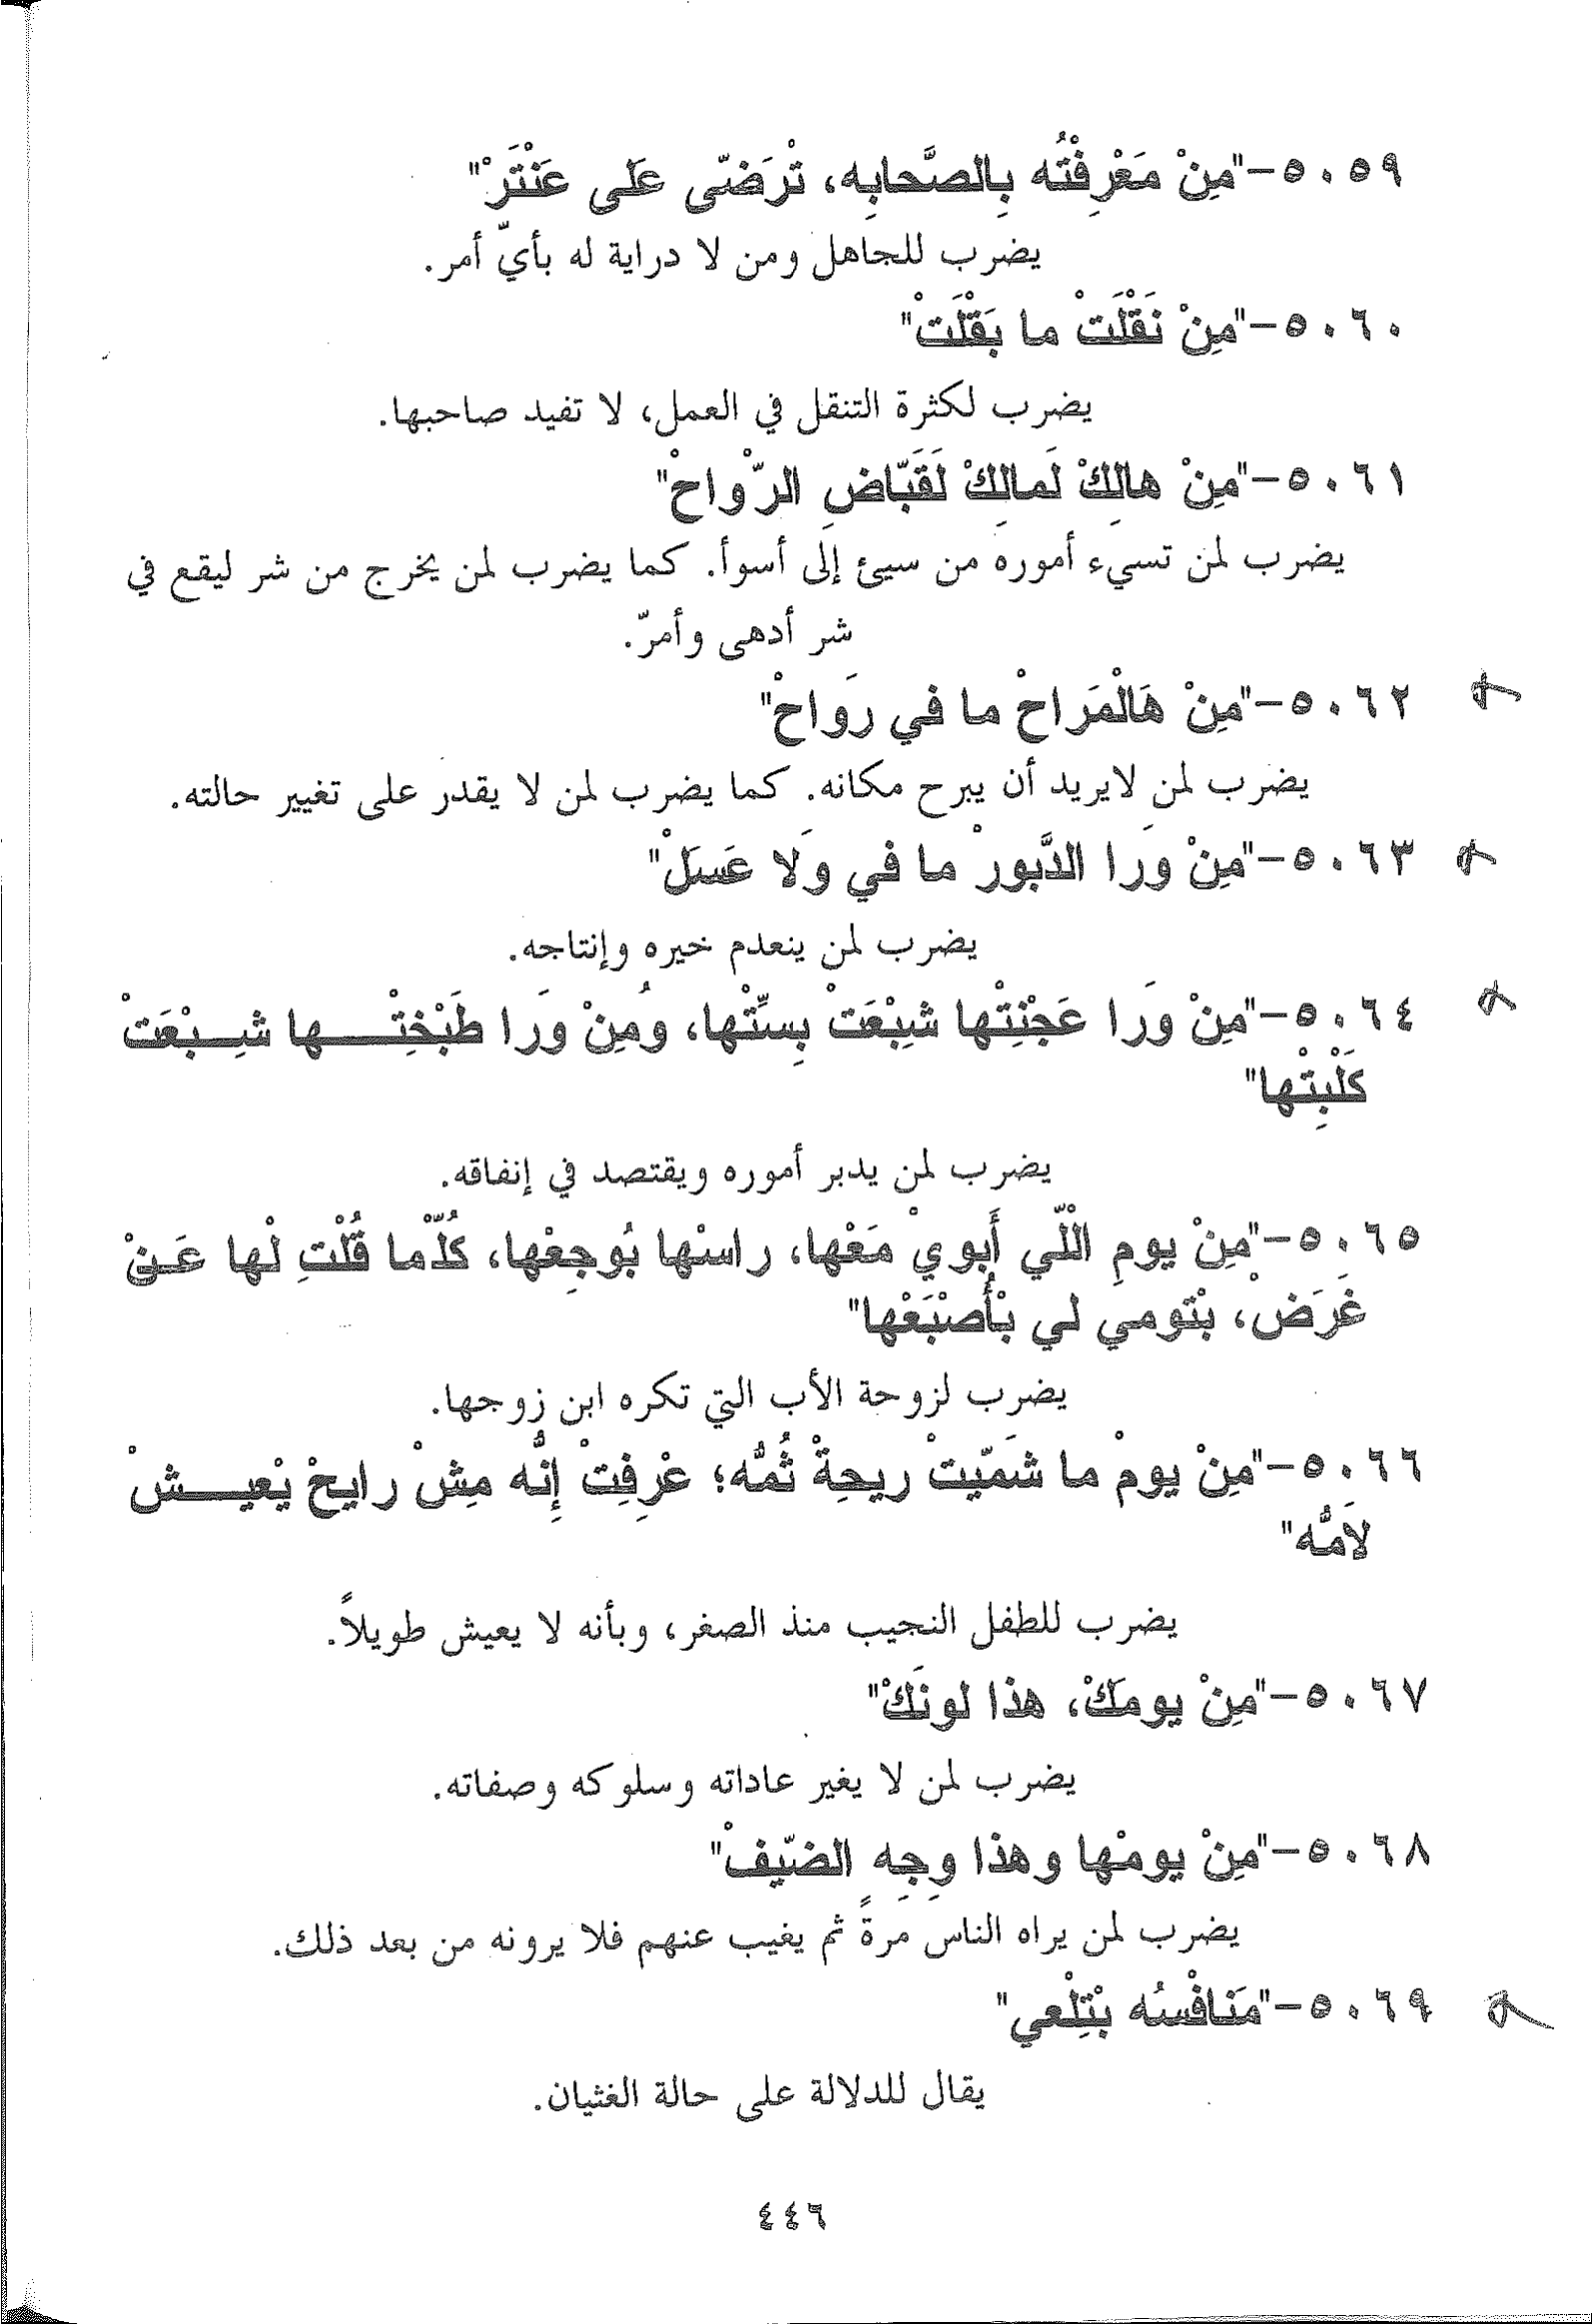 ٥٠٥٩-"مِنْ مَعْرِفْتُه بِالصَّحابِه، تْرَضّى عَلى عَنْتَرْ"
يضرب للجاهل ومن لا دراية له بأيّ أمر.
٥٠٦٠-"مِنْ نَقْلَتْ ما بَقْلَتْ"
يضرب لكثرة التنقل في العمل، لا تفيد صاحبها.
٥٠٦١-"مِنْ هالِكْ لَمالِكْ لَقَبّاضِ الرّْواحْ"
يضرب لمن تسيء أموره من سيئ إلى أسوأ. كما يضرب لمن يخرج من شر ليقع في
شر أدهى وأمرّ.
٥٠٦٢-"مِنْ هَالْمَراحْ ما في رَواحْ"
يضرب لمن لايريد أن يبرح مكانه. كما يضرب لمن لا يقدر على تغيير حالته.
٥٠٦٣-"مِنْ وَرا الدَّبورْ ما في وَلا عَسَلْ"
يضرب لمن ينعدم خيره وإنتاجه.
٥٠٦٤-"مِنْ وَرا عَجْنِتْها شِبْعَتْ بِسِّتْها، وُمِنْ وَرا طَبْخِتْها شِبْعَتْ
كَلْبِتْها"
يضرب لمن يدبر أموره ويقتصد في إنفاقه.
٥٠٦٥-"مِنْ يومِ الْلّي أَبويْ مَعْها، راسْها بُوجِعْها، كُلّْما قُلْتِ لْها عَنْ
غَرَضْ، بْتومي لي بْأُصْبَعْها"
يضرب لزوجة الأب التي تكره ابن زوجها.
٥٠٦٦-"مِنْ يومْ ما شَمّيتْ ريحِةْ ثُمُّه؛ عْرِفِتْ إِنُّه مِشْ رايحْ يْعيشْ
لاَمُّه"
يضرب للطفل النجيب منذ الصغر، وبأنه لا يعيش طويلاً.
٥٠٦٧-"مِنْ يومَكْ، هذا لونَكْ"
يضرب لمن لا يغير عاداته وسلوكه وصفاته.
٥٠٦٨-"مِنْ يومْها وهذا وِجِه الضّيفْ"
يضرب لمن يراه الناس مرةً ثم يغيب عنهم فلا يرونه من بعد ذلك.
٥٠٦٩-"مَنافْسُه بْتِلْعي"
يقال للدلالة على حالة الغثيان.
٤٤٦